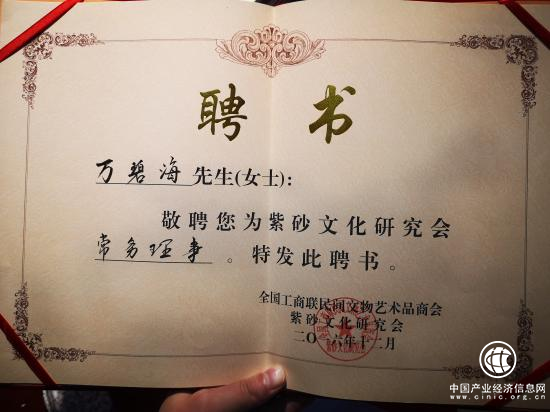 聘书
万碧海先生(女士):
敬聘您为紫砂文化研究会
常务理事。特发此聘书。
全国工商联民间文物艺术品商会
紫砂文化研究会
二〇一六年十二月
中国产业经济信息网
www.cinic.org.cn